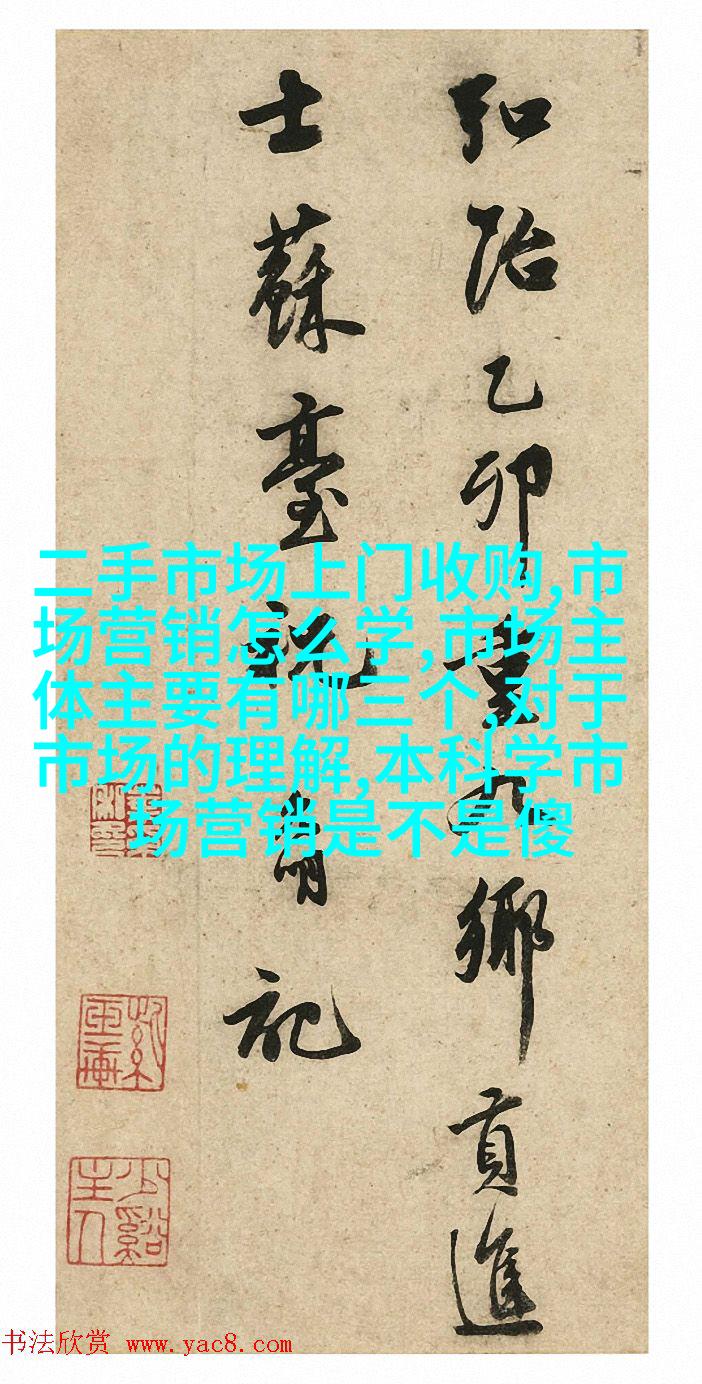 弘治乙卯重九鄉貢進
士蘇臺祝允明記
二手市场上门收购,市
场营销怎么学,市场主
体主要有哪三个,对于
市场的理解,本科学市
场营销是不是傻
少谿
主人
书法欣赏 www.yac8.com